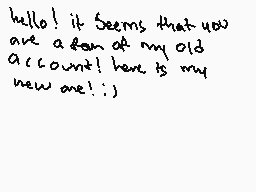 hello! it seems that you
are a fan of my old
account! here is my
new one! :)